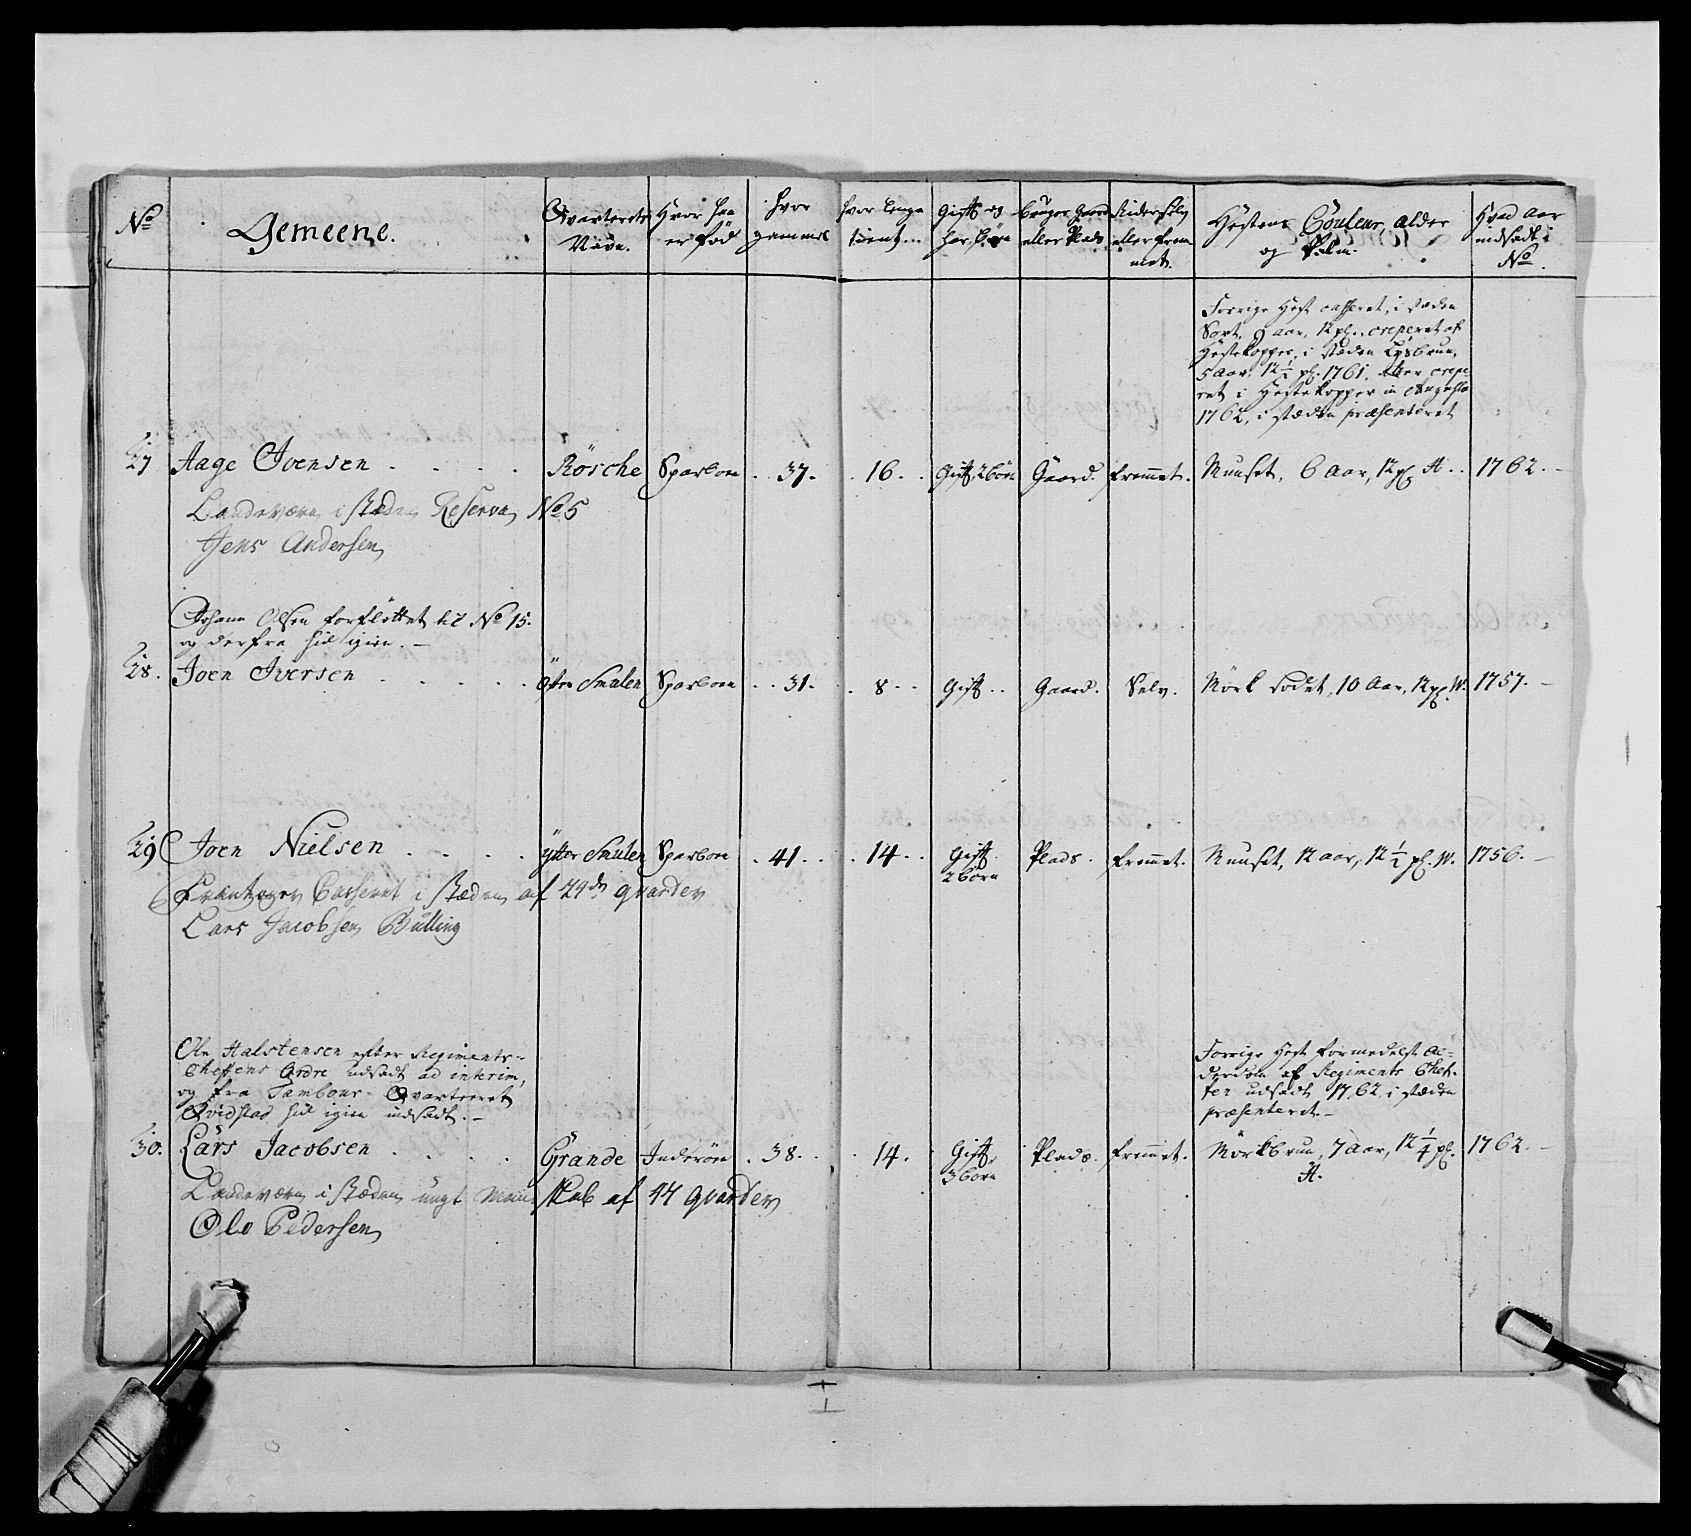 No
Gemeene.
Qvarterets
Navn.
Hvor han
er fød
Hvor
gammel
hvor lenge
tient
Gift og
har børn
bruger Gaard
eller Plads
Rider selv
eller frem
met.
Hestens Couleur, alder
og
Hvad Aar
indsadt i
No
Forrige Hest casseret, i stæden
Sort, 9 aar, 12 pl. creperet af
Hestekopper, i stæden Lysbrun,
5 Aar, 12½ pl. 1761. Atter crepe
ret i Hestekopper in Augusto
1762, i stæden præsenteret
27 Aage Ivensen Rösche Sparboe 37. 16. Gift, 2 börn Gaard. fremmet. Muuset, 6 Aar, 12 pl. A 1762.
Landeværn, i stæden Reserven No 5
Jens Andersen
Johan Olsen forflöttet til No 15.
og derfra hid igien.
28. Joen Iversen Smulen Sparboe 31. 8 Gift Gaard. Selv. Mörk rödet, 10 Aar, 12 pl. W. 1757.
29 Joen Nielsen Ytter Smulen Sparboe 41. 14 Gift
2 börn Plads. fremmet. Muuset, 12 aar, 12½ pl. W. 1756.
Casseret i stæden af 29de qvarter
Lars Jacobsen Bulling
Ole Halstensen efter Regiments-
Cheffens Ordre udsadt ad interim,
og fra Tambour-Qvarteeret
Qvidstad hid igien indsadt.
Forrige Hest formedelst Al-
derdom af Regiments Chef-
fen udsadt 1762, i stæden
præsenteret.
30. Lars Jacobsen Grande Inderöen 38. 14. Gift,
3 börn Plads. fremmet. Mörkbrun, 7 aar, 12¼ pl.
A. 1762.
Landeværn i stæden ungt Mandskab af 44 qvarter
Ole Pedersen